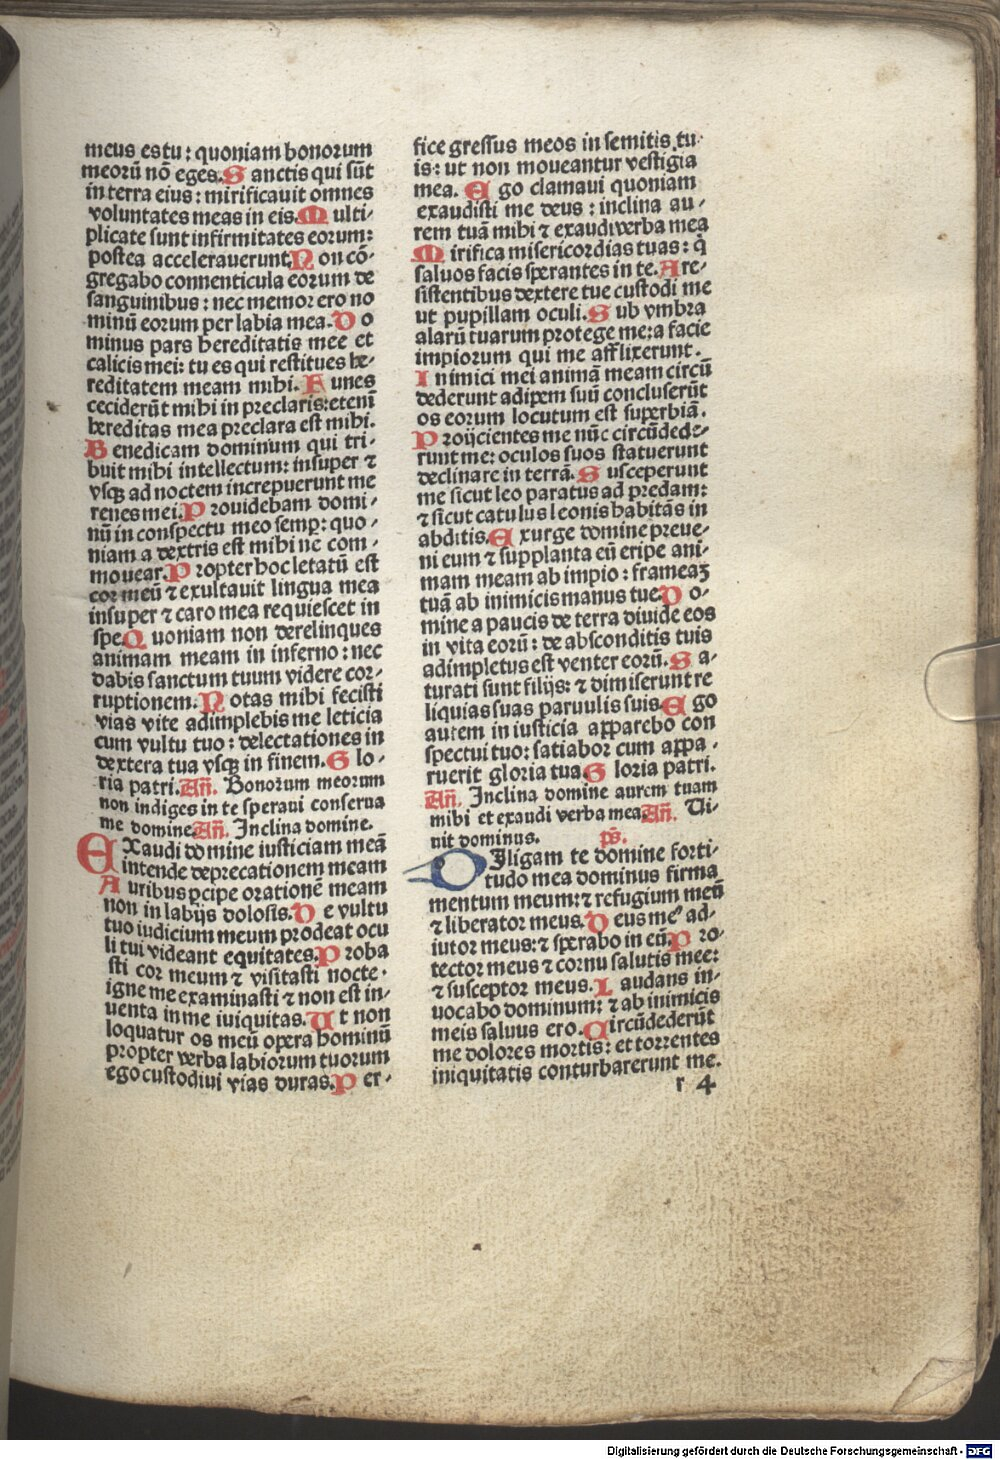 meus es tu : quoniam bonorum
meorū nō eges. S anctis qui sūt
in terra eius : mirificauit omnes
voluntates meas in eis. M ulti-
plicate sunt infirmitates eorum:
postea accelerauerunt. N on cō-
gregabo conuenticula eorum de
sanguinibus : nec memor ero no
minū eorum per labia mea. D o
minus pars hereditatis mee et
calicis mei: tu es qui restitues he-
reditatem meam mihi. F unes
ceciderūt mihi in preclaris: etenī
hereditas mea preclara est mihi.
B enedicam dominum qui tri-
buit mihi intellectum: insuper ⁊
vsqꝫ ad noctem increpuerunt me
renes mei. P rouidebam domi-
nū in conspectu meo semꝑ: quo-
niam a dextris est mihi ne com-
mouear. P ropter hoc letatū est
cor meū ⁊ exultauit lingua mea
insuper ⁊ caro mea requiescet in
spe. Q uoniam non derelinques
animam meam in inferno : nec
dabis sanctum tuum videre cor-
ruptionem. N otas mihi fecisti
vias vite adimplebis me leticia
cum vultu tuo : delectationes in
dextera tua vsqꝫ in finem. G lo-
ria patri. Añ. Bonorum meorum
non indiges in te speraui conserua
me domine. Añ. Inclina domine.
EXaudi domine iusticiam meā
intende deprecationem meam
A uribus ꝑcipe orationē meam
non in labijs dolosis. D e vultu
tuo iudicium meum prodeat ocu
li tui videant equitates. P roba
sti cor meum ⁊ visitasti nocte.
igne me examinasti ⁊ non est in-
uenta in me iuiquitas. U t non
loquatur os meū opera hominū
propter verba labiorum tuorum
ego custodiui vias duras. P er-
fice gressus meos in semitis tu-
is: ut non moueantur vestigia
mea. E go clamaui quoniam
exaudisti me deus : inclina au-
rem tuā mihi ⁊ exaudi verba mea
M irifica misericordias tuas : q̄
saluos facis sperantes in te. A re-
sistentibus dextere tue custodi me
ut pupillam oculi. S ub vmbra
alarū tuarum protege me: a facie
impiorum qui me afflixerunt.
I nimici mei animā meam circū
dederunt adipem suū concluserūt
os eorum locutum est superbiā.
P roijcientes me nūc circūdede-
runt me: oculos suos statuerunt
declinare in terrā. S usceperunt
me sicut leo paratus ad predam:
⁊ sicut catulus leonis habitās in
abditis. E xurge domine preue-
ni eum ⁊ supplanta eū eripe ani-
mam meam ab impio : frameaꝫ
tuā ab inimicis manus tue. D o-
mine a paucis de terra diuide eos
in vita eorū : de absconditis tuis
adimpletus est venter eorū. S a-
turati sunt filijs: ⁊ dimiserunt re
liquias suas paruulis suis. E go
autem in iusticia apparebo con
spectui tuo: satiabor cum appa-
ruerit gloria tua. G loria patri.
Añ. Inclina domine aurem tuam
mihi et exaudi verba mea. Añ. Ui-
uit dominus. ps.
DIligam te domine forti-
tudo mea dominus firma
mentum meum: ⁊ refugium meū
⁊ liberator meus. D eus meꝰ ad-
iutor meus: ⁊ sperabo in eū. P ro-
tector meus ⁊ cornu salutis mee:
⁊ susceptor meus. L audans in-
uocabo dominum: ⁊ ab inimicis
meis saluus ero. C ircūdederūt
me dolores mortis: et torrentes
iniquitatis conturbarerunt me.
r 4
Digitalisierung gefördert durch die Deutsche Forschungsgemeinschaft - DFG